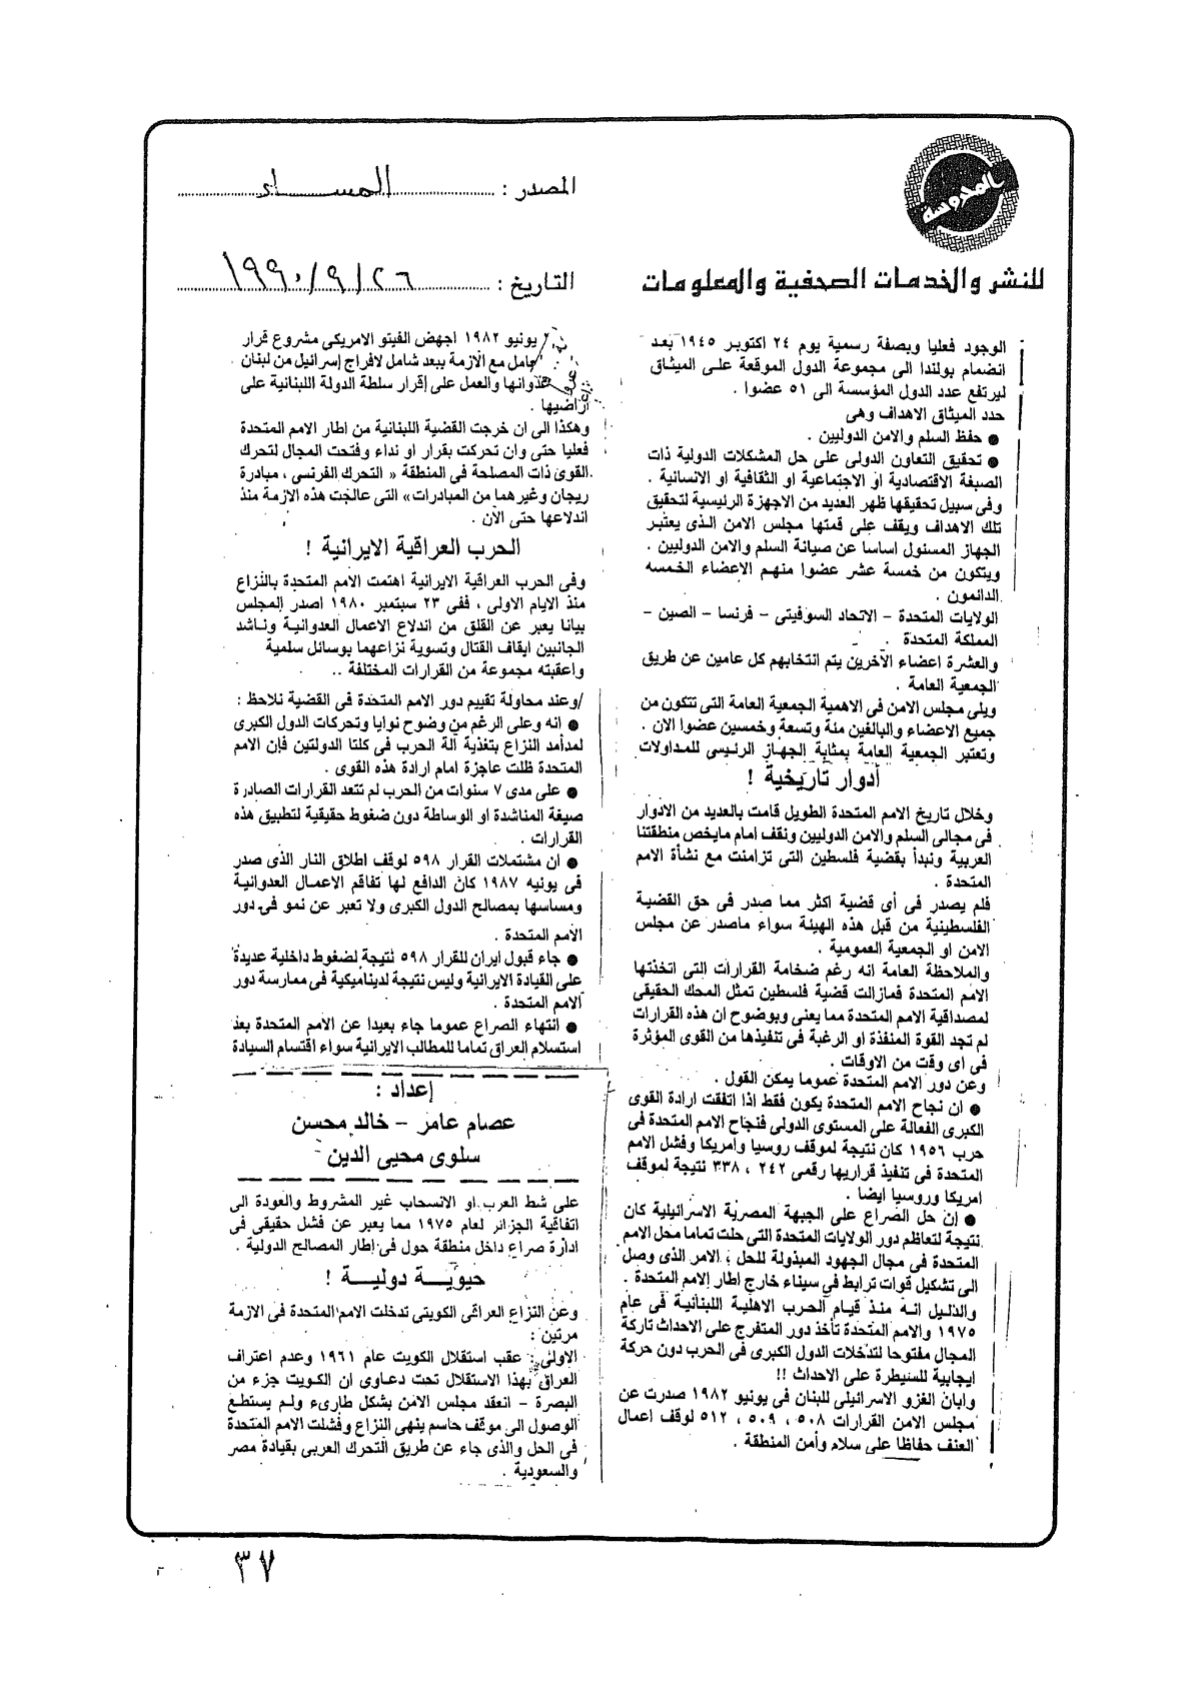 المحروسة
للنشر والخدمات الصحفية والمعلومات
المصدر : المســاء
التاريخ : ٢٦/٩/١٩٩٠
الوجود فعليا وبصفة رسمية يوم ٢٤ اكتوبر ١٩٤٥ بعد
انضمام بولندا الى مجموعة الدول الموقعة على الميثاق
ليرتفع عدد الدول المؤسسة الى ٥١ عضوا .
حدد الميثاق الاهداف وهى
● حفظ السلم والامن الدوليين .
● تحقيق التعاون الدولى على حل المشكلات الدولية ذات
الصبغة الاقتصادية او الاجتماعية او الثقافية او الانسانية .
وفى سبيل تحقيقها ظهر العديد من الاجهزة الرئيسية لتحقيق
تلك الاهداف ويقف على قمتها مجلس الامن الذى يعتبر
الجهاز المسئول اساسا عن صيانة السلم والامن الدوليين .
ويتكون من خمسة عشر عضوا منهم الاعضاء الخمسه
الدائمون .
الولايات المتحدة – الاتحاد السوفيتى – فرنسا – الصين –
المملكة المتحدة .
والعشرة اعضاء الآخرين يتم انتخابهم كل عامين عن طريق
الجمعية العامة .
ويلى مجلس الامن فى الاهمية الجمعية العامة التى تتكون من
جميع الاعضاء والبالغين مئة وتسعة وخمسين عضوا الان .
وتعتبر الجمعية العامة بمثابة الجهاز الرئيسى للمداولات
أدوار تاريخية !
وخلال تاريخ الامم المتحدة الطويل قامت بالعديد من الادوار
فى مجالى السلم والامن الدوليين ونقف امام مايخص منطقتنا
العربية ونبدأ بقضية فلسطين التى تزامنت مع نشأة الامم
المتحدة .
فلم يصدر فى أى قضية اكثر مما صدر فى حق القضية
الفلسطينية من قبل هذه الهيئة سواء ماصدر عن مجلس
الامن او الجمعية العمومية .
والملاحظة العامة انه رغم ضخامة القرارات التى اتخذتها
الامم المتحدة فمازالت قضية فلسطين تمثل المحك الحقيقى
لمصداقية الامم المتحدة مما يعنى وبوضوح ان هذه القرارات
لم تجد القوة المنفذة او الرغبة فى تنفيذها من القوى المؤثرة
فى اى وقت من الاوقات .
وعن دور الامم المتحدة عموما يمكن القول .
● ان نجاح الامم المتحدة يكون فقط اذا اتفقت ارادة القوى
الكبرى الفعالة على المستوى الدولى فنجاح الامم المتحدة فى
حرب ١٩٥٦ كان نتيجة لموقف روسيا وامريكا وفشل الامم
المتحدة فى تنفيذ قراريها رقمى ٢٤٢ ، ٣٣٨ نتيجة لموقف
امريكا وروسيا ايضا .
● إن حل الصراع على الجبهة المصرية الاسرائيلية كان
نتيجة لتعاظم دور الولايات المتحدة التى حلت تماما محل الامم
المتحدة فى مجال الجهود المبذولة للحل ، الامر الذى وصل
الى تشكيل قوات ترابط فى سيناء خارج اطار الامم المتحدة .
والدليل انه منذ قيام الحرب الاهلية اللبنانية فى عام
١٩٧٥ والامم المتحدة تأخذ دور المتفرج على الاحداث تاركة
المجال مفتوحا لتدخلات الدول الكبرى فى الحرب دون حركة
ايجابية للسيطرة على الاحداث !!
وابان الغزو الاسرائيلى للبنان فى يونيو ١٩٨٢ صدرت عن
مجلس الامن القرارات ٥٠٨ ، ٥٠٩ ، ٥١٢ لوقف اعمال
العنف حفاظا على سلام وأمن المنطقة .
يونيو ١٩٨٢ اجهض الفيتو الامريكى مشروع قرار
مع الازمة ببعد شامل لافراج إسرائيل من لبنان
عدوانها والعمل على إقرار سلطة الدولة اللبنانية على
اراضيها .
وهكذا الى ان خرجت القضية اللبنانية من اطار الامم المتحدة
فعليا حتى وان تحركت بقرار او نداء وفتحت المجال لتحرك
القوى ذات المصلحة فى المنطقة « التحرك الفرنسى ، مبادرة
ريجان وغيرهما من المبادرات» التى عالجت هذه الازمة منذ
اندلاعها حتى الآن .
الحرب العراقية الايرانية !
وفى الحرب العراقية الايرانية اهتمت الامم المتحدة بالنزاع
منذ الايام الاولى ، ففى ٢٣ سبتمبر ١٩٨٠ اصدر المجلس
بيانا يعبر عن القلق من اندلاع الاعمال العدوانية وناشد
الجانبين ايقاف القتال وتسوية نزاعهما بوسائل سلمية
واعقبته مجموعة من القرارات المختلفة ..
وعند محاولة تقييم دور الامم المتحدة فى القضية نلاحظ :
● انه وعلى الرغم من وضوح نوايا وتحركات الدول الكبرى
لمدأمد النزاع بتغذية آلة الحرب فى كلتا الدولتين فإن الامم
المتحدة ظلت عاجزة امام ارادة هذه القوى .
● على مدى ٧ سنوات من الحرب لم تتعد القرارات الصادرة
صيغة المناشدة او الوساطة دون ضغوط حقيقية لتطبيق هذه
القرارات .
● ان مشتملات القرار ٥٩٨ لوقف اطلاق النار الذى صدر
فى يونيه ١٩٨٧ كان الدافع لها تفاقم الاعمال العدوانية
ومساسها بمصالح الدول الكبرى ولا تعبر عن نمو فى دور
الامم المتحدة .
● جاء قبول ايران للقرار ٥٩٨ نتيجة لضغوط داخلية عديدة
على القيادة الايرانية وليس نتيجة لديناميكية فى ممارسة دور
الامم المتحدة .
● انتهاء الصراع عموما جاء بعيدا عن الامم المتحدة بعد
استسلام العراق تماما للمطالب الايرانية سواء اقتسام السيادة
إعداد :
عصام عامر – خالد محسن
سلوى محيى الدين
على شط العرب او الانسحاب غير المشروط والعودة الى
اتفاقية الجزائر لعام ١٩٧٥ مما يعبر عن فشل حقيقى فى
ادارة صراع داخل منطقة حول فى إطار المصالح الدولية .
حيويــة دوليــة !
وعن النزاع العراقى الكويتى تدخلت الامم المتحدة فى الازمة
مرتين :
الاولى : عقب استقلال الكويت عام ١٩٦١ وعدم اعتراف
العراق بهذا الاستقلال تحت دعاوى ان الكويت جزء من
البصرة – انعقد مجلس الامن بشكل طارىء ولم يستطع
الوصول الى موقف حاسم ينهى النزاع وفشلت الامم المتحدة
فى الحل والذى جاء عن طريق التحرك العربى بقيادة مصر
والسعودية .
٣٧